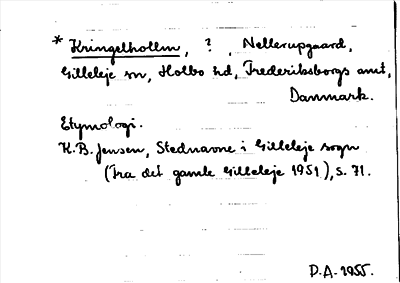 * Kringelhollm, ?, Nellerupgaard,
Gilleleje sn, Holbo hd, Frederiksborgs amt,
Danmark.
Etymologi.
K.B. Jensen, Stednavne i Gilleleje sogn
(Fra det gamle Gilleleje 1951), s. 71.
D.A. 1955.